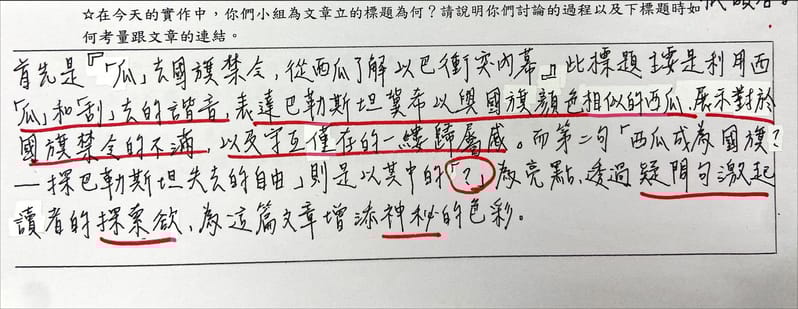 ☆在今天的實作中，你們小組為文章立的標題為何？請說明你們討論的過程以及下標題時如
何考量跟文章的連結。
首先是『「瓜」去國旗禁令，從西瓜了解以巴衝突內幕』此標題主要是利用西
「瓜」和「刮」去的諧音，表達巴勒斯坦冀希以與國旗顏色相似的西瓜，展示對於
國旗禁令的不滿，以及守互僅存的一縷歸屬感。而第二句「西瓜成為國旗？
—探巴勒斯坦失去的自由」則是以其中的「？」為亮點，透過疑問句激起
讀者的探索欲，為這篇文章增添神秘的色彩。